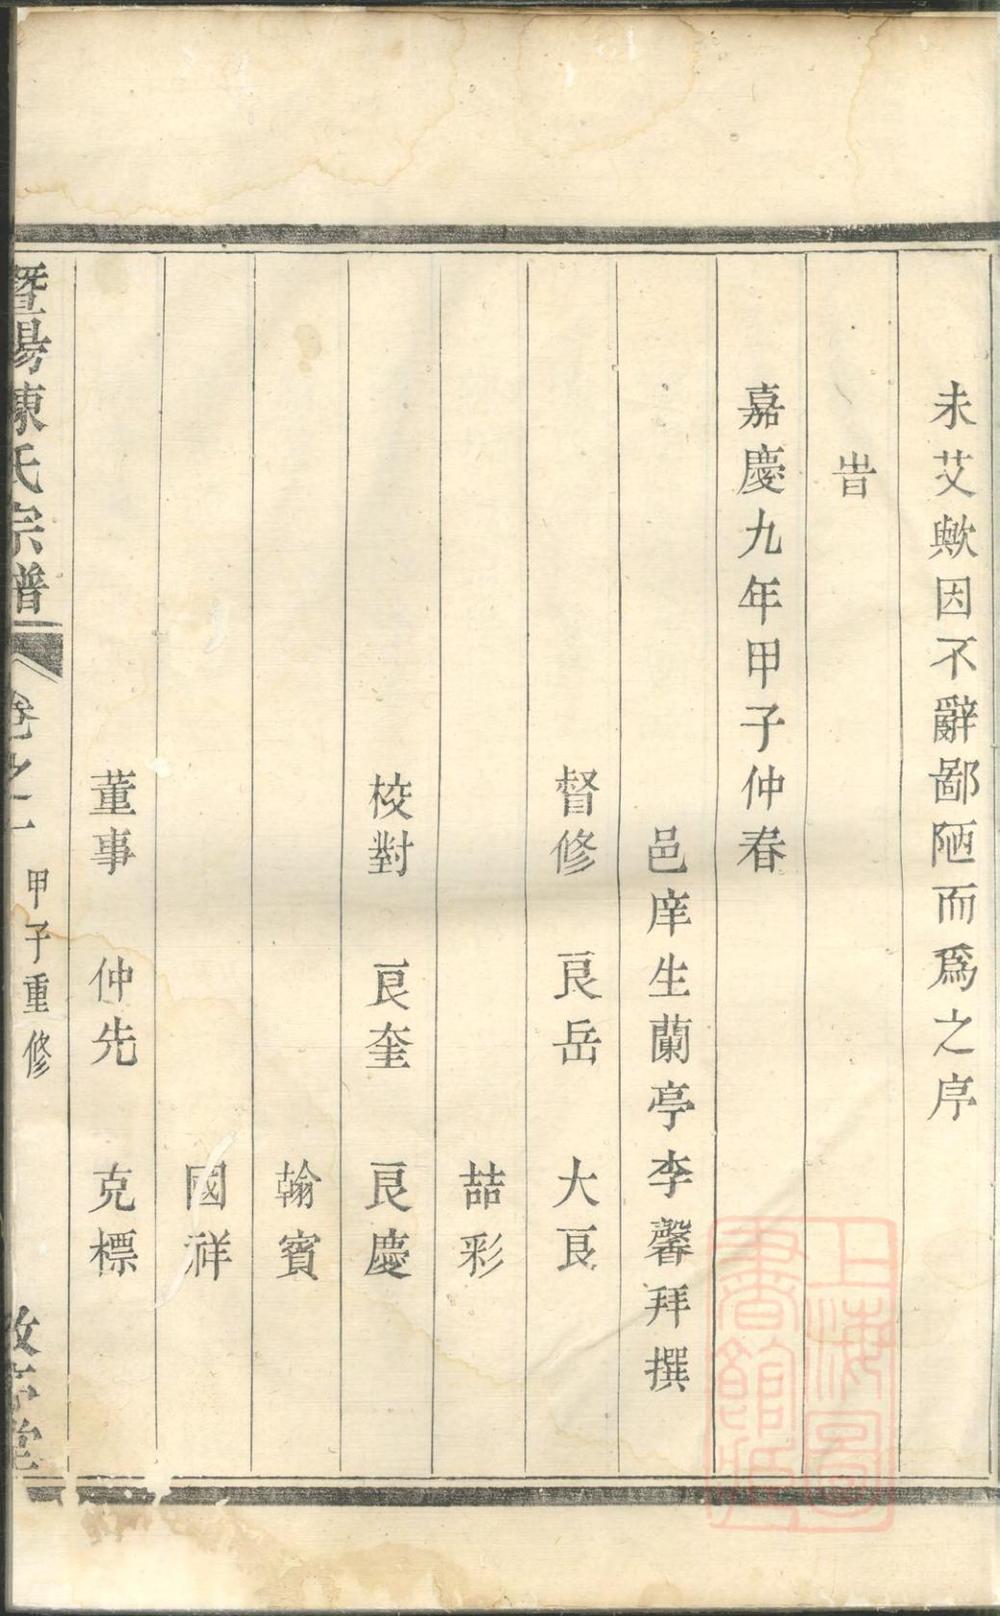 未艾歟因不辭鄙陋而爲之序
旹
嘉慶九年甲子仲春
邑庠生蘭亭李馨拜撰
督修 良岳 大良
喆彩
校對 良奎 良慶
翰賓
國祥
董事 仲先 克標
暨陽陳氏宗譜 卷之一 甲子重修
上海圖書館藏